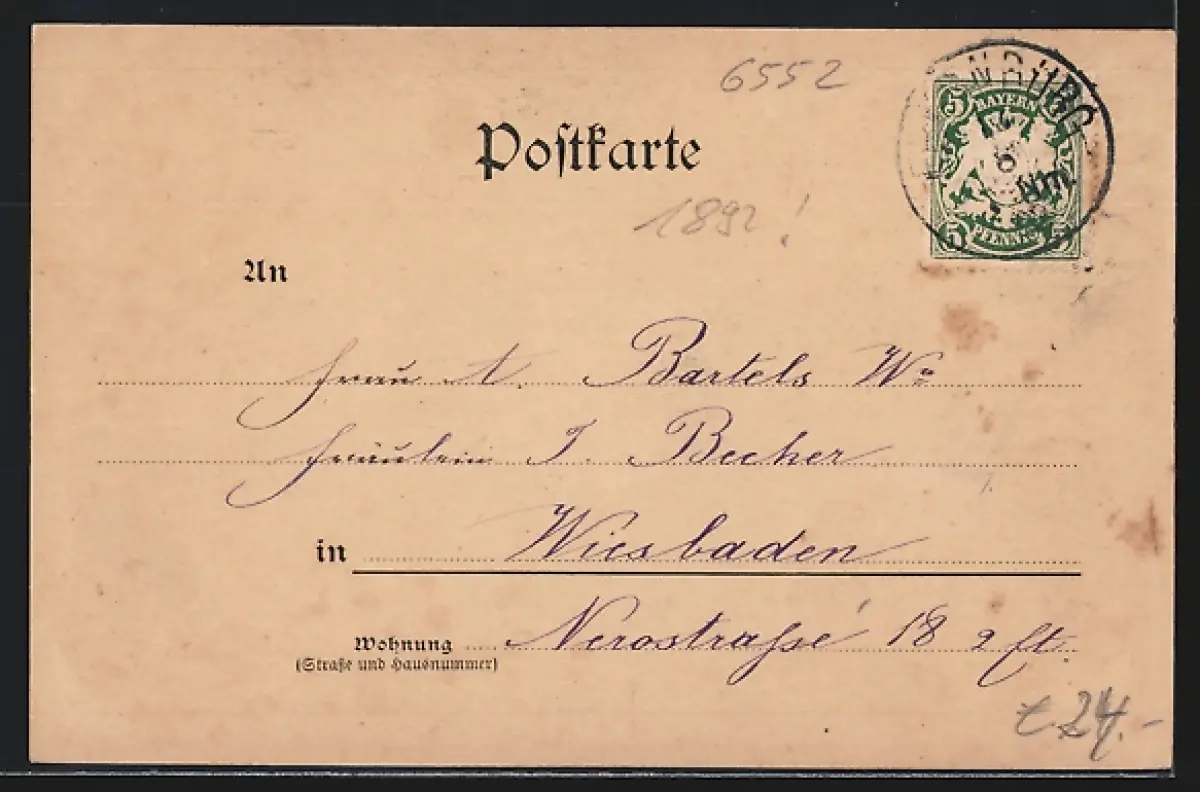 6552
Postkarte
5 BAYERN 5
6
Nm.
5 PFENNIG 5
1892!
An
Frau A. Bartels Wᵒ
Fräulein J. Becher
in Wiesbaden
Wohnung Nerostraße 18 2 St.
(Straße und Hausnummer)
24.-